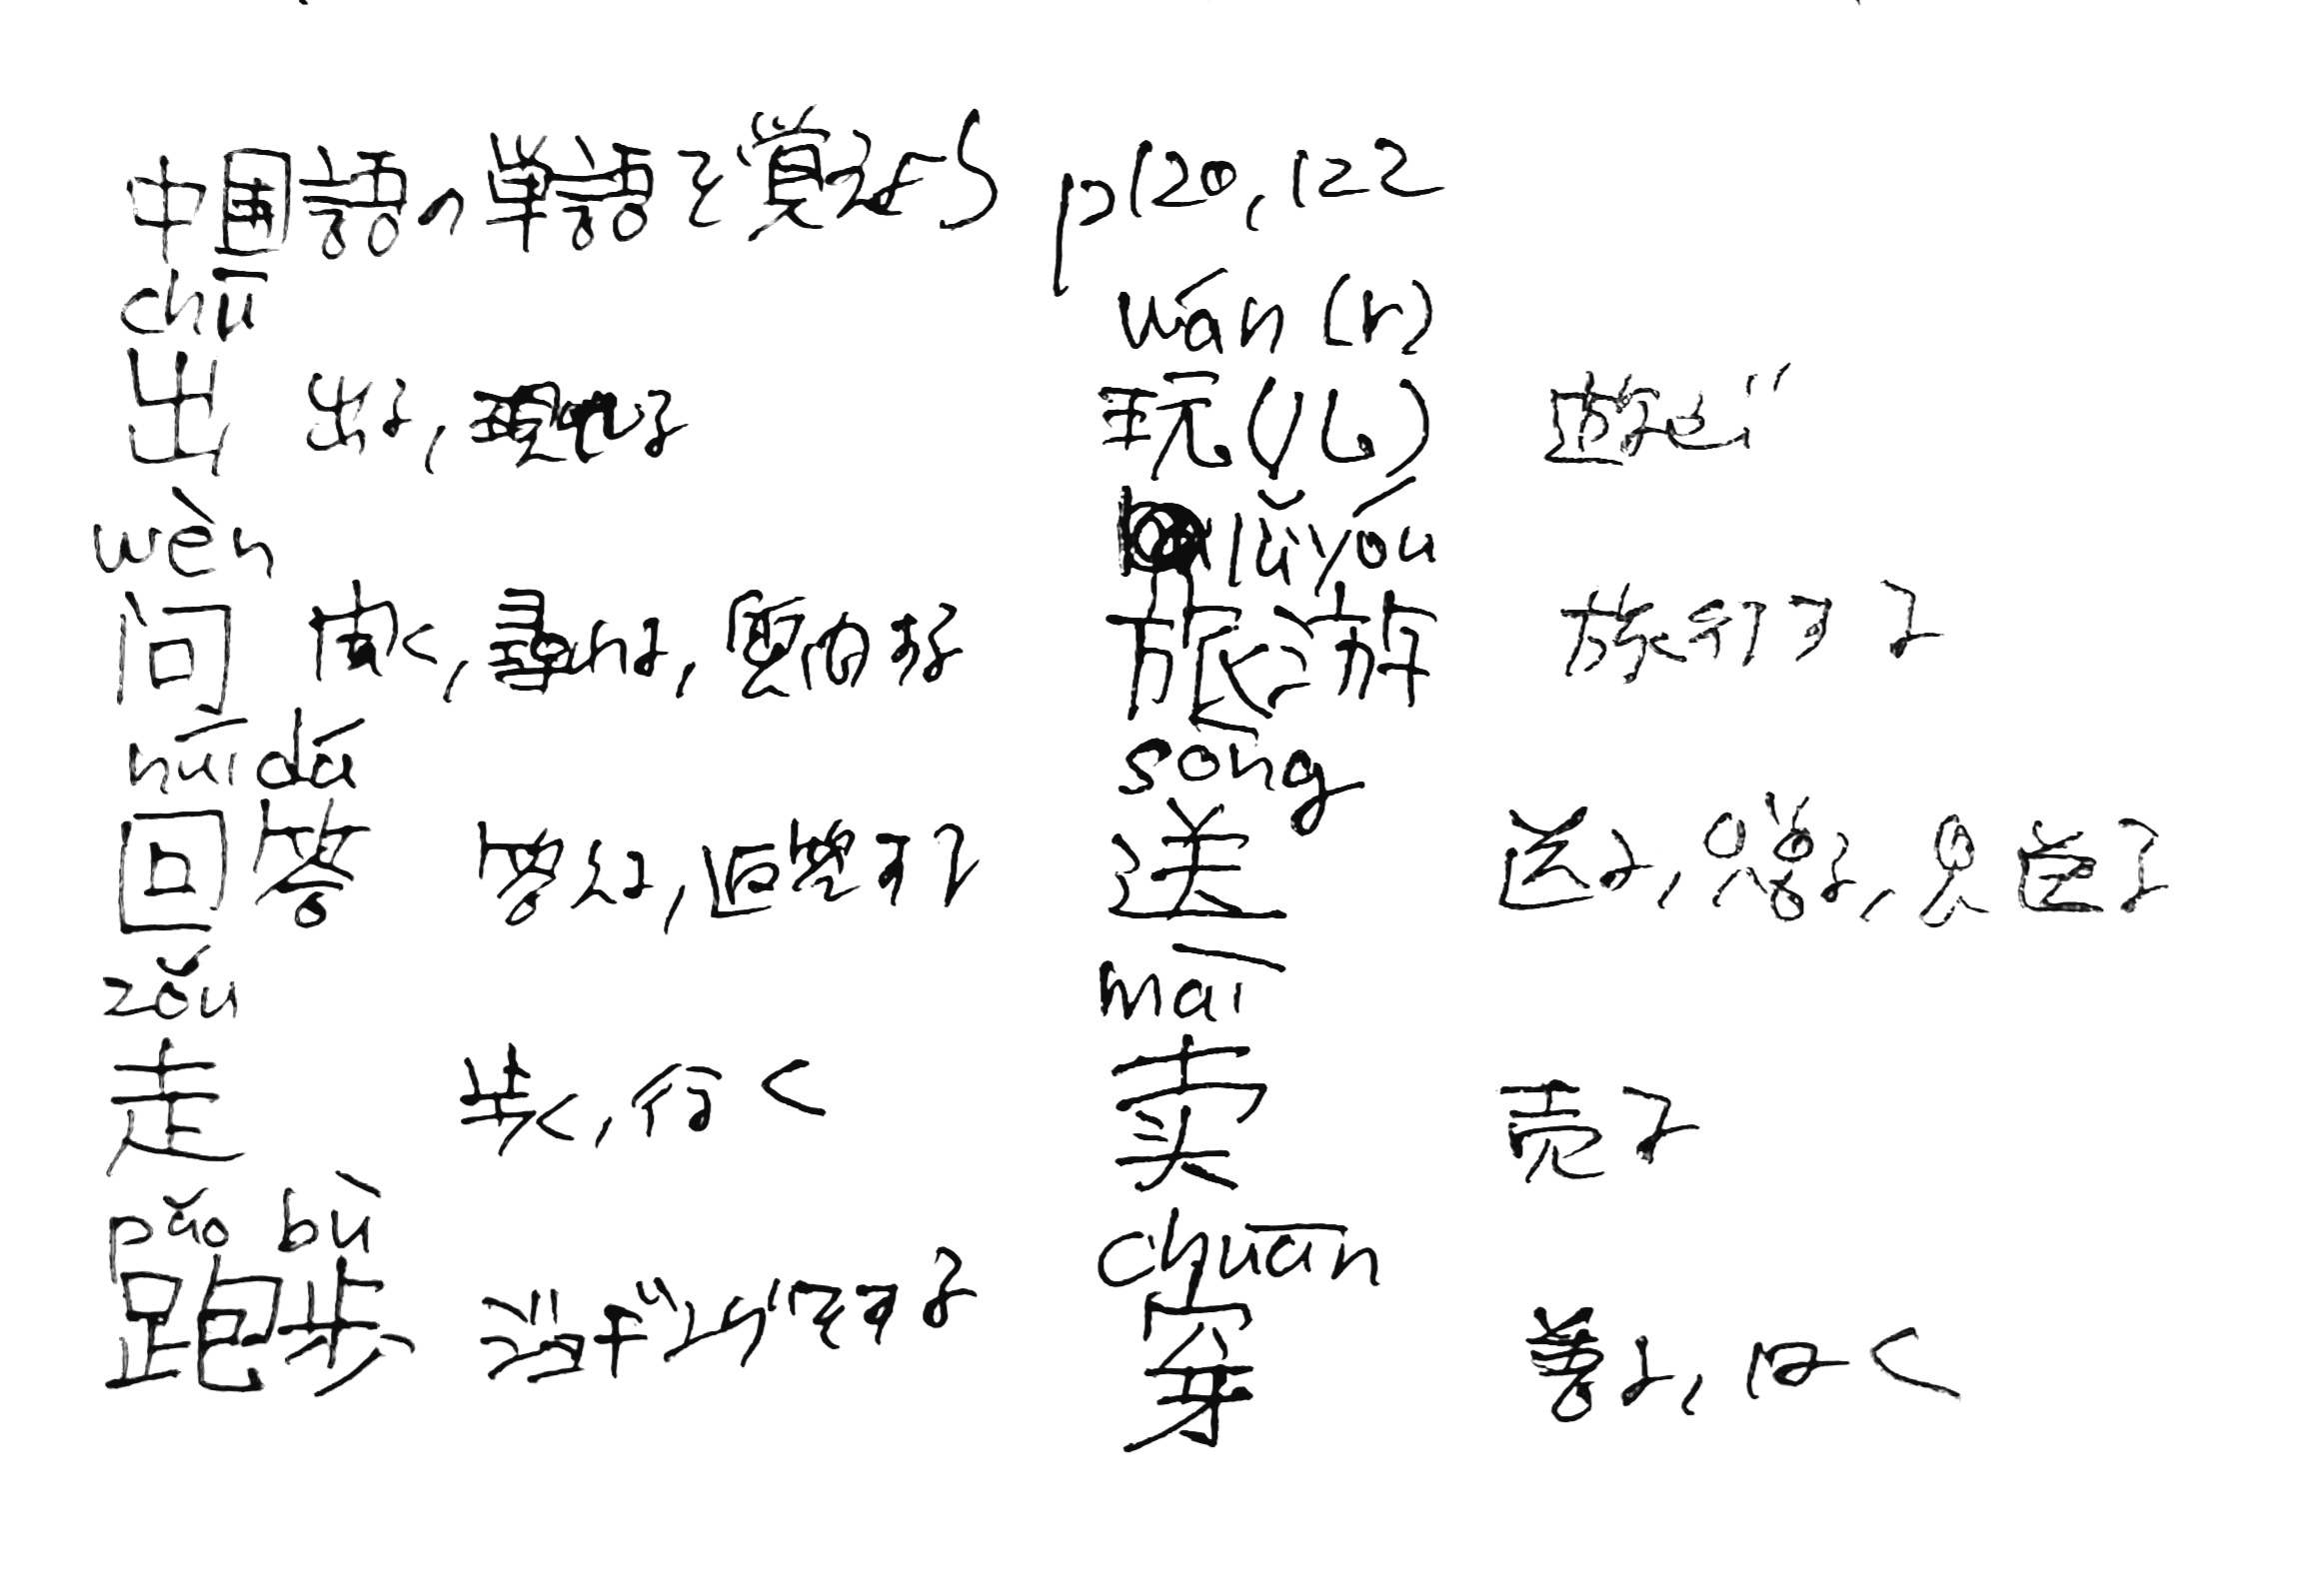 中国語の単語を覚えよう p120,122
chū
出 出る,現れる
wèn
问 聞く,尋ねる,質問する
huí dá
回答 答える,回答する
zǒu
走 歩く,行く
pǎo bù
跑步 ジョギングする
wán (r)
玩(儿) 遊ぶ
lǚyóu
旅游 旅行する
song
送 送る,贈る,見送る
māi
卖 売る
chuān
穿 着る,はく